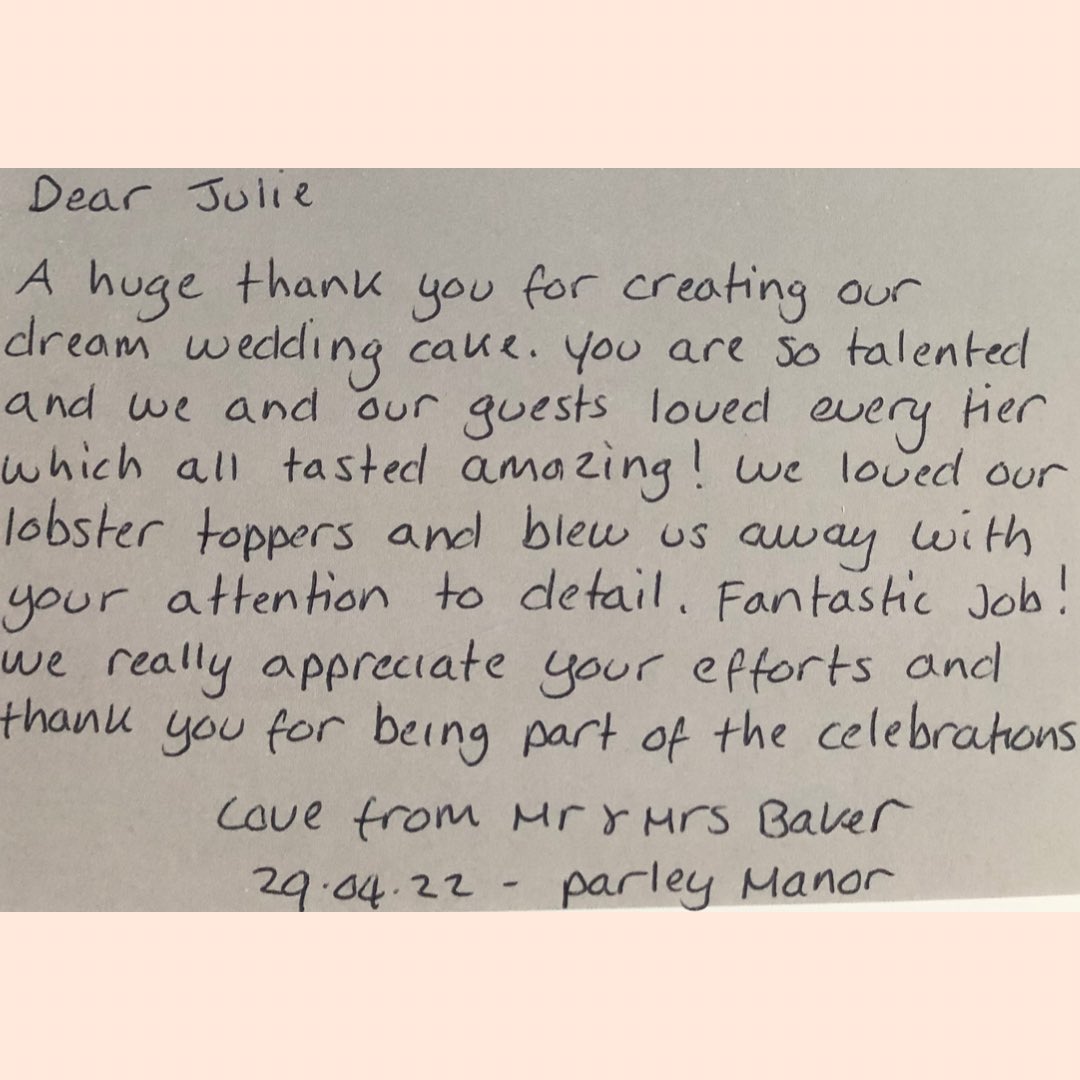 Dear Julie
A huge thank you for creating our
dream wedding cake. You are so talented
and we and our guests loved every tier
which all tasted amazing! We loved our
lobster toppers and blew us away with
your attention to detail. Fantastic Job!
We really appreciate your efforts and
thank you for being part of the celebrations
Love from Mr & Mrs Baker
29.04.22 - Parley Manor